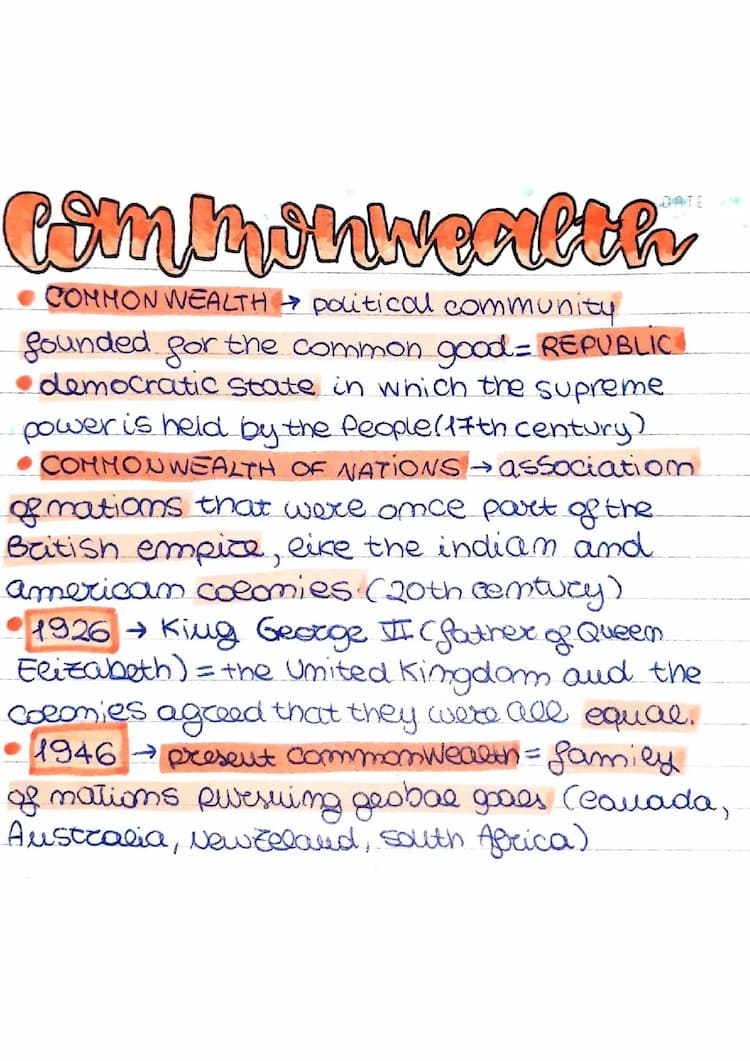 Commonwealth
DATE
• COMMONWEALTH → political community
founded for the common good = REPUBLIC
• democratic state in which the supreme
power is held by the People (17th century)
• COMMONWEALTH OF NATIONS → association
of nations that were once part of the
British empire, like the indian and
american colonies (20th century)
• 1926 → King George II (father of Queen
Elizabeth) = the United Kingdom and the
colonies agreed that they were all equal.
• 1946 → present commonwealth = family
of nations pursuing global goals (Canada,
Australia, New Zeland, South Africa)